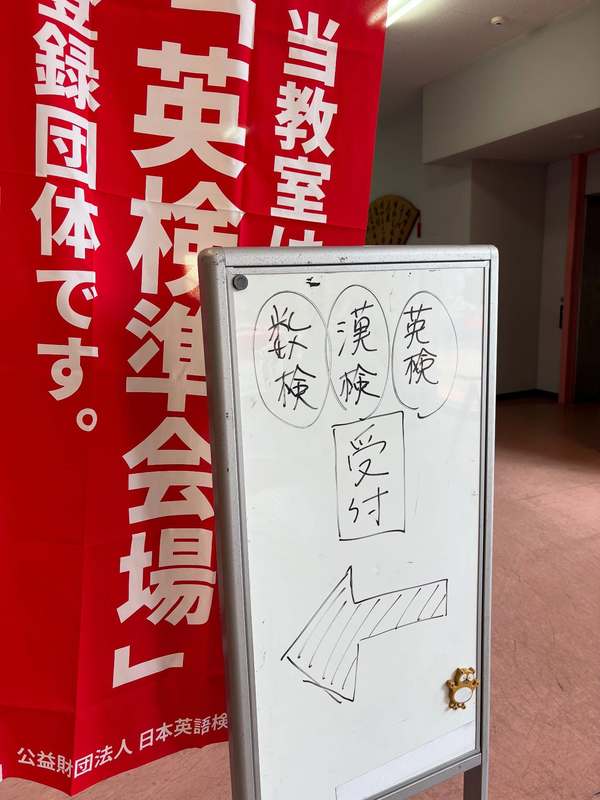 当教室は
「英検準会場」
登録団体です。
公益財団法人 日本英語検
英検
漢検
数検
受付